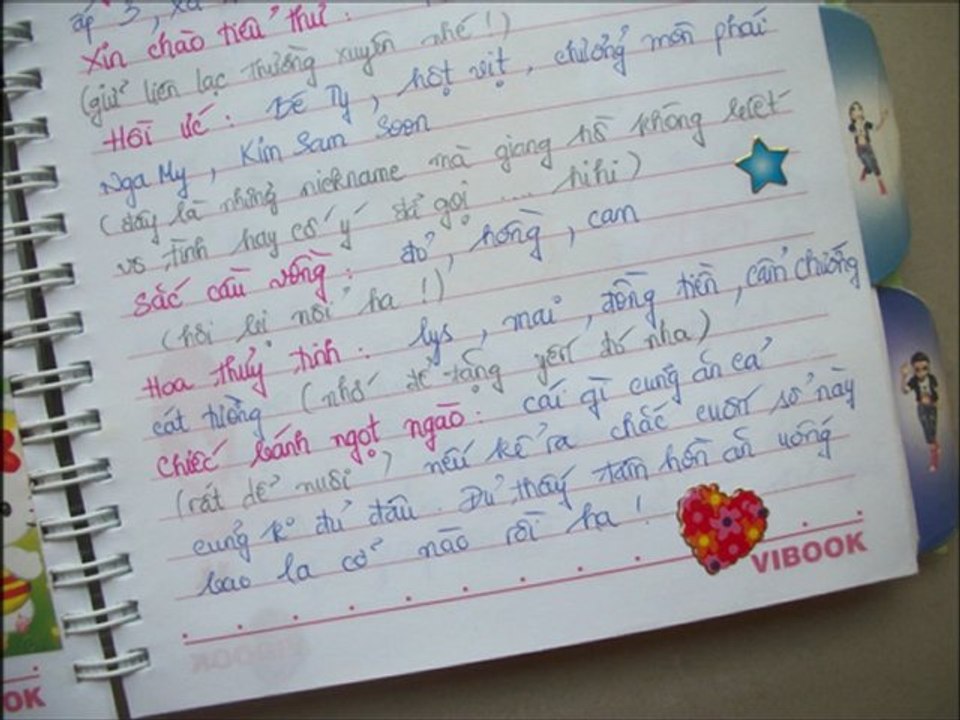 ấp 3, xa
Xin chào tiểu thư :
(giữ liên lạc thường xuyên nhé !)
Hồi ức : Bé Ty, hột vịt, chưởng môn phái
Nga My, Kim Sam Soon
(đây là những nickname mà giang hồ không biết
vô tình hay cố ý đã gọi .... hihi)
Sắc cầu vồng : đỏ, hồng, cam
(hơi bị nổi ha !)
Hoa thủy tinh : lys, mai, đồng tiền, cẩm chướng
cát tường (nhớ để tặng yến đó nha)
Chiếc bánh ngọt ngào : cái gì cũng ăn cả
(rất dễ nuôi) nếu kể ra chắc cuốn sổ này
cũng k đủ đâu. Đủ thấy tâm hồn ăn uống
bao la cỡ nào rồi ha !
VIBOOK
OK